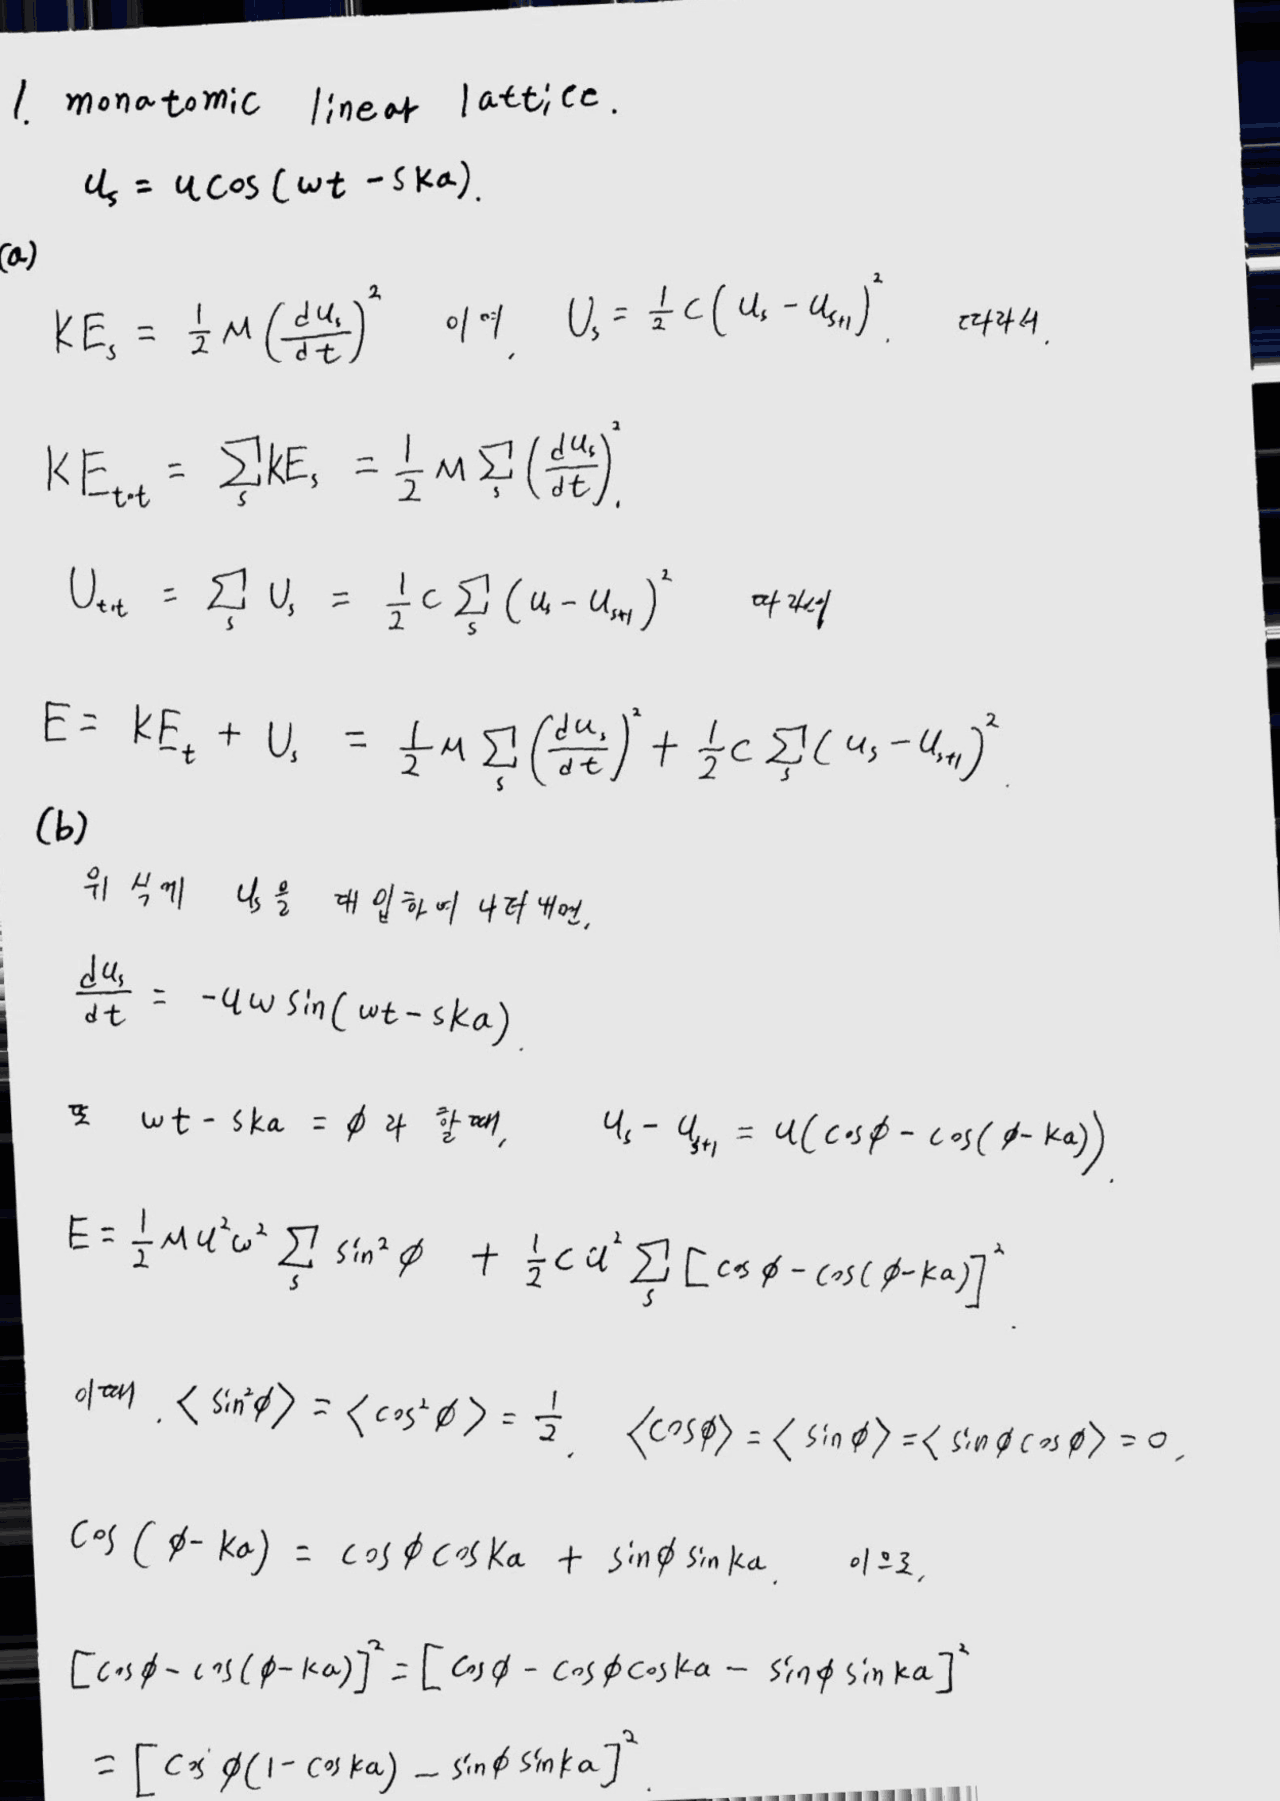 1. monatomic linear lattice.
u_s = u cos(wt - ska).
(a)
KE_s = 1/2 M (du_s/dt)^2 이며, U_s = 1/2 C (u_s - u_{s+1})^2. 따라서,
KE_tot = Σ_s KE_s = 1/2 M Σ_s (du_s/dt)^2.
U_tot = Σ_s U_s = 1/2 C Σ_s (u_s - u_{s+1})^2 따라서
E = KE_t + U_s = 1/2 M Σ_s (du_s/dt)^2 + 1/2 C Σ_s (u_s - u_{s+1})^2.
(b)
위 식에 u_s을 대입하여 나타내면,
du_s/dt = -uw sin(wt - ska).
또 wt - ska = φ라 할때, u_s - u_{s+1} = u(cosφ - cos(φ - ka)).
E = 1/2 M u^2 ω^2 Σ_s sin^2 φ + 1/2 C u^2 Σ_s [cosφ - cos(φ-ka)]^2.
이때, <sin^2φ> = <cos^2φ> = 1/2, <cosφ> = <sinφ> = <sinφcosφ> = 0,
cos(φ - ka) = cosφ cos ka + sinφ sin ka. 이므로,
[cosφ - cos(φ-ka)]^2 = [cosφ - cosφ cos ka - sinφ sin ka]^2
= [cosφ(1 - cos ka) - sinφ sin ka]^2.